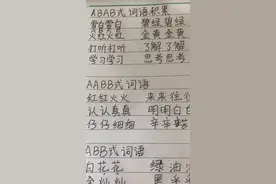 ABAB式词语积累
雪白雪白 碧绿碧绿
火红火红 金黄金黄
打听打听 了解了解
学习学习 思考思考
AABB式词语
红红火火 来来往往
认认真真 明明白白
仔仔细细 辛辛
ABB式词语
白花花 绿油
金灿灿 黑